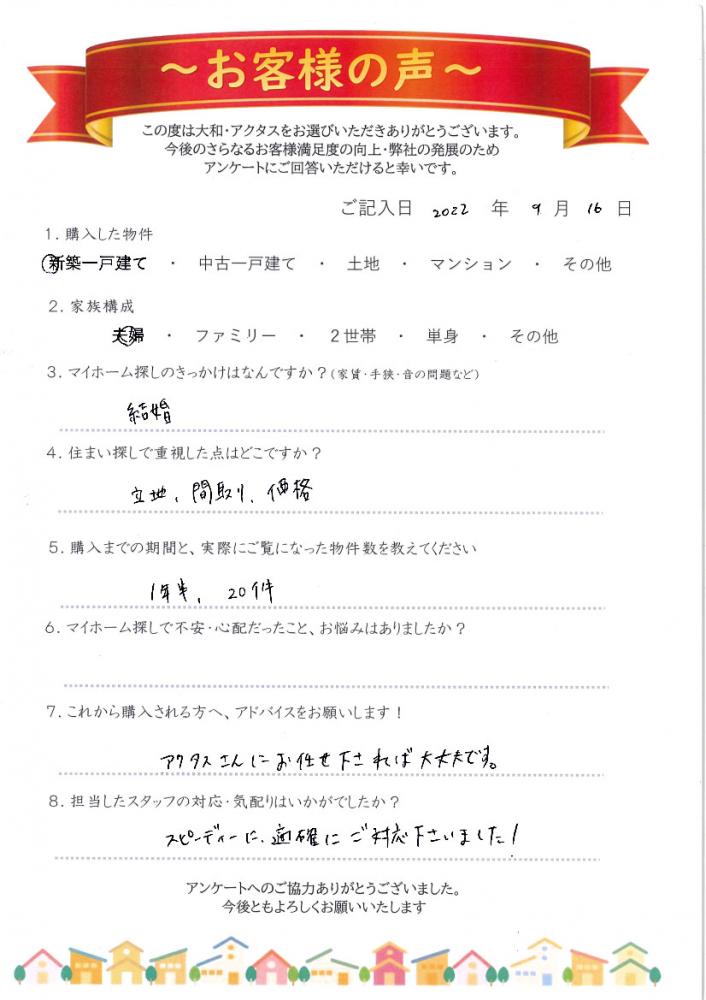 ～お客様の声～
この度は大和・アクタスをお選びいただきありがとうございます。
今後のさらなるお客様満足度の向上・弊社の発展のため
アンケートにご回答いただけると幸いです。
ご記入日 2022 年 9 月 16 日
1. 購入した物件
新築一戸建て ・ 中古一戸建て ・ 土地 ・ マンション ・ その他
2. 家族構成
夫婦 ・ ファミリー ・ 2世帯 ・ 単身 ・ その他
3. マイホーム探しのきっかけはなんですか？(家賃・手狭・音の問題など)
結婚
4. 住まい探しで重視した点はどこですか？
立地、間取り、価格
5. 購入までの期間と、実際にご覧になった物件数を教えてください
1年半、20件
6. マイホーム探しで不安・心配だったこと、お悩みはありましたか？
7. これから購入される方へ、アドバイスをお願いします！
アクタスさんにお任せ下されば大丈夫です。
8. 担当したスタッフの対応・気配りはいかがでしたか？
スピーディーに、適確にご対応下さいました！
アンケートへのご協力ありがとうございました。
今後ともよろしくお願いいたします